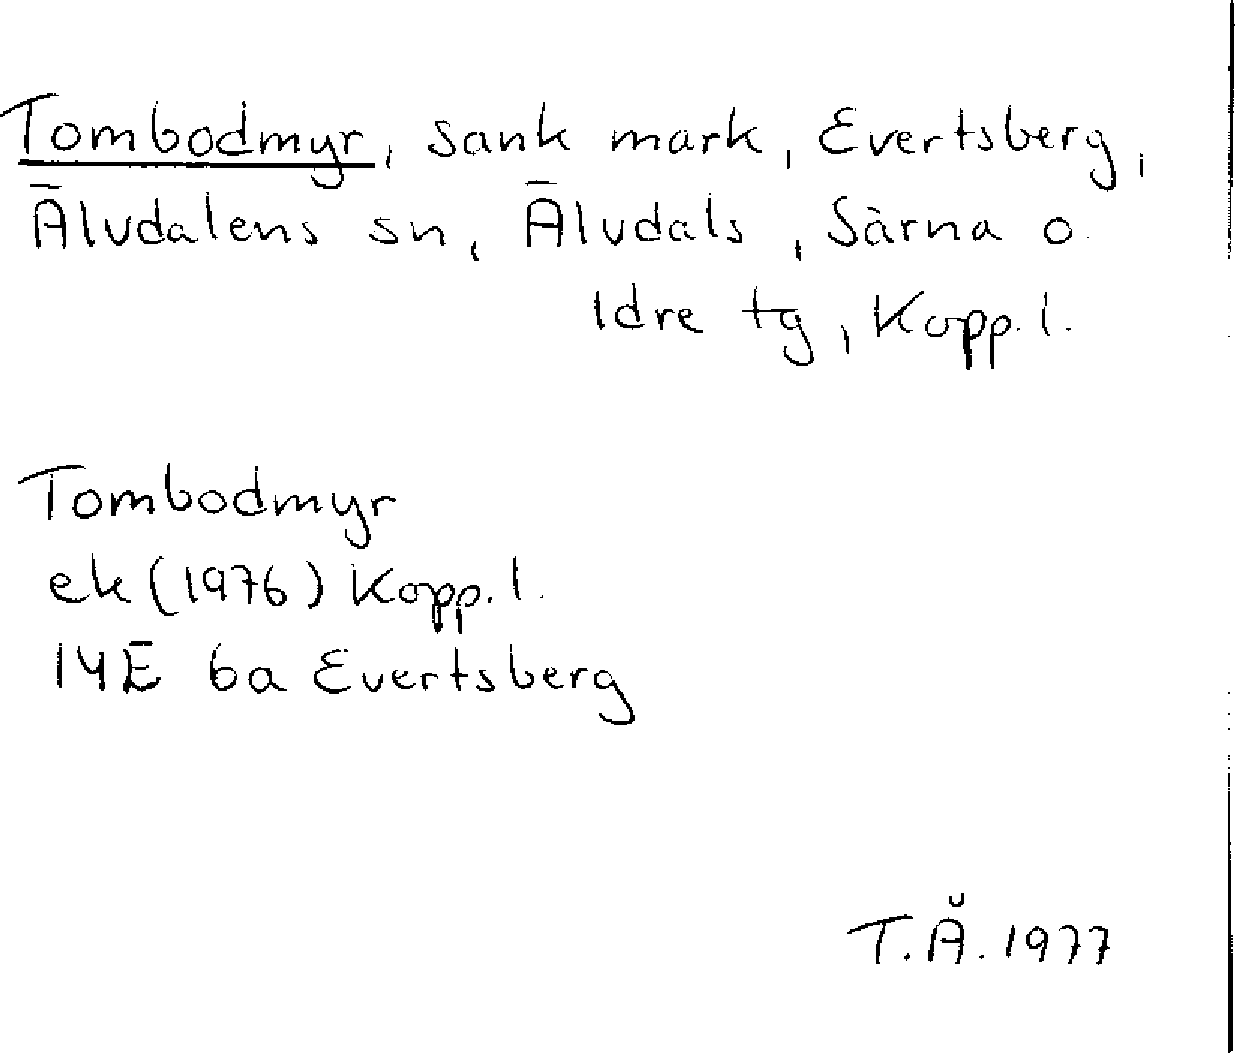 Tombodmyr, sank mark, Evertsberg,
Älvdalens sn, Älvdals, Särna o.
Idre tg, Kopp. l.
Tombodmyr
ek (1976) Kopp. l.
14E 6a Evertsberg
T.Å. 1977